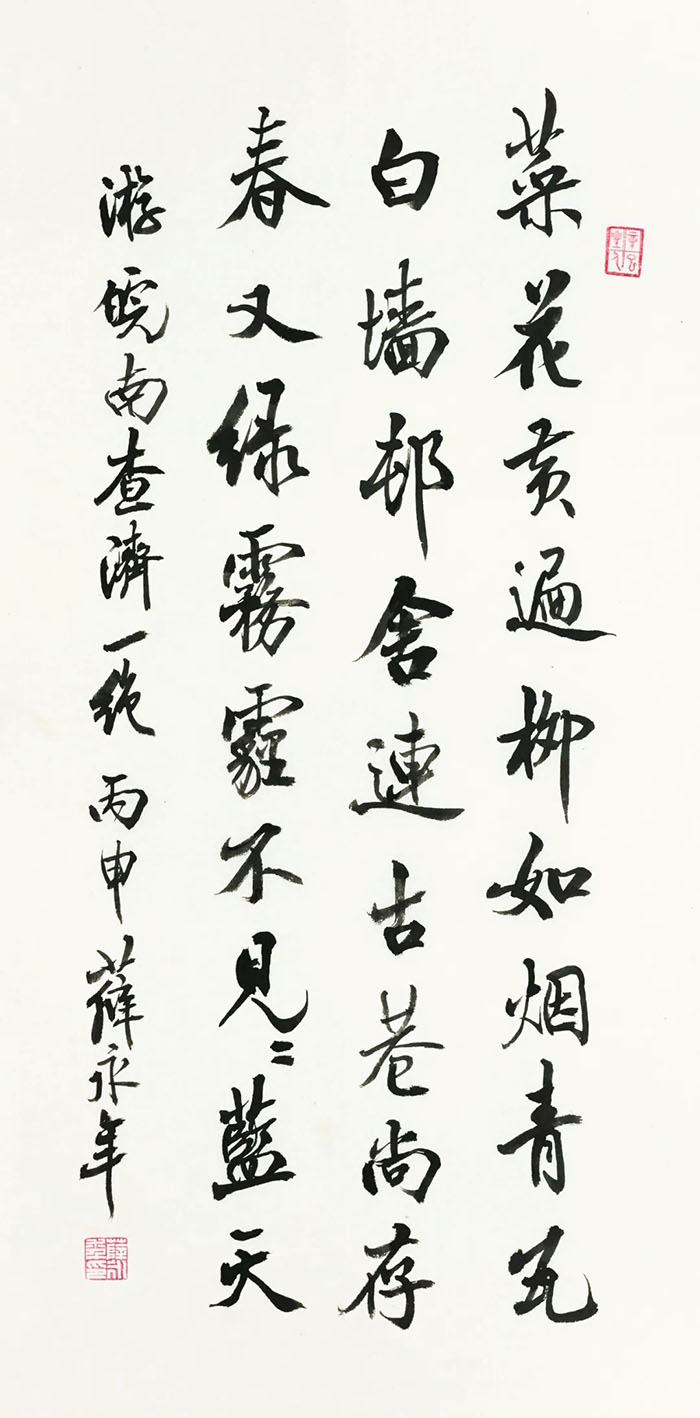 菜花黄遍柳如烟青瓦
白墙邨舍連古巷尚存
春又绿霧霾不見〻藍天
游皖南查濟一绝 丙申 薛永年